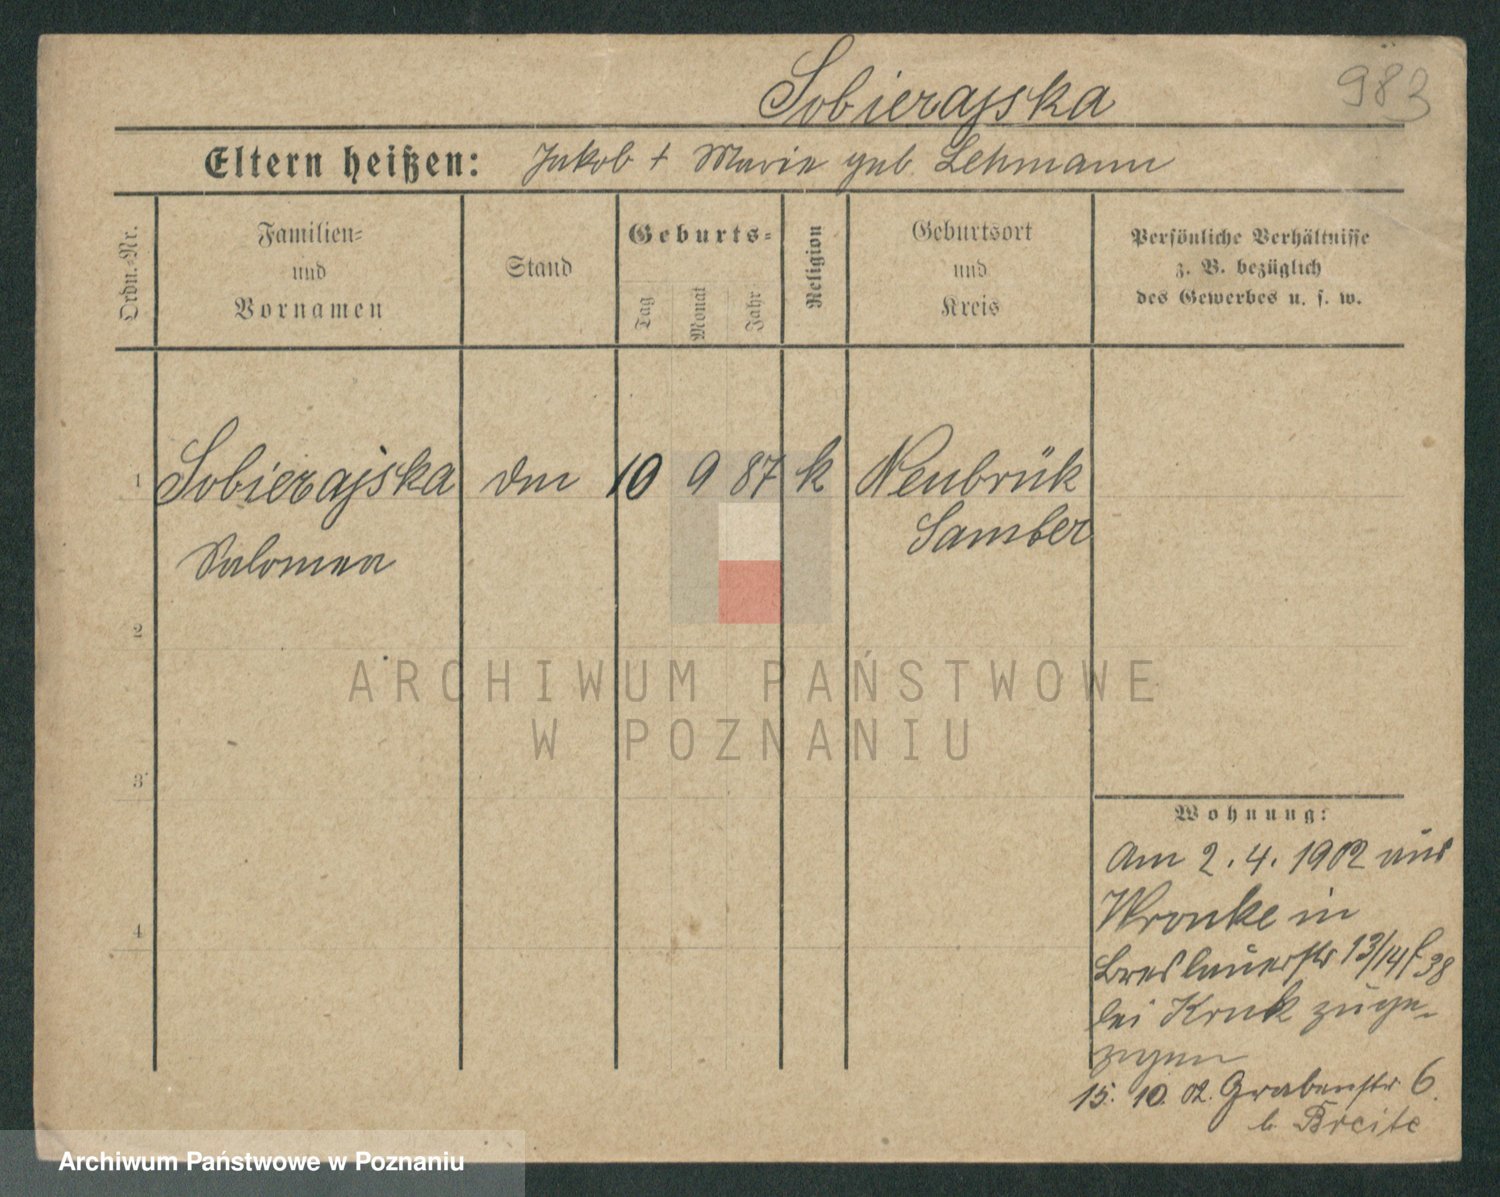 Sobierajska
983
Eltern heißen: Jakob + Marie geb. Lehmann
Ordn.-Nr.
Familien-
und
Vornamen
Stand
Geburts-
Tag
Monat
Jahr
Religion
Geburtsort
und
Kreis
Persönliche Verhältnisse
z. B. bezüglich
des Gewerbes u. s. w.
1 Sobierajska 10 9 87 k Neubrük
Salomea
Samter
2
3
4
ARCHIWUM PAŃSTWOWE
W POZNANIU
Wohnung:
Am 2. 4. 1902 aus
Wronke in
Breslauerstr 13/14 38
bei Kruk zuge-
zogen
15. 10. 02. Grabenstr. 6.
b. Breite
Archiwum Państwowe w Poznaniu